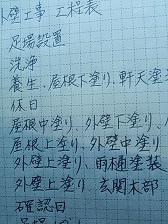 壁工事 工程表
足場設置
洗浄
養生、屋根下塗り、軒天塗
休日
屋根中塗り、外壁下塗り、
屋根上塗り、外壁中塗り
外壁上塗り、雨樋塗装
外壁上塗り、玄関木部
確認日